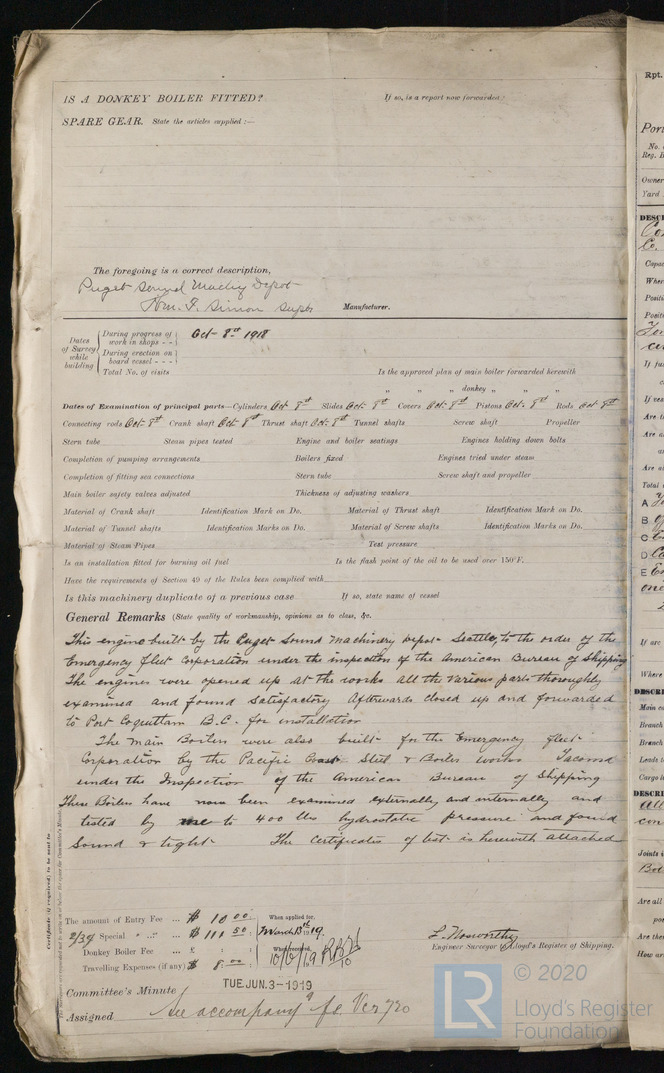 IS A DONKEY BOILER FITTED? If so, is a report now forwarded?
SPARE GEAR. State the articles supplied :—
The foregoing is a correct description,
Puget Sound Machy Depot
Wm. F. Simon Supt Manufacturer.
Dates of Survey while building
During progress of work in shops - - Oct- 8st 1918
During erection on board vessel - - -
Total No. of visits Is the approved plan of main boiler forwarded herewith
" " " donkey " " "
Dates of Examination of principal parts—Cylinders Oct. 8st Slides Oct. 8st Covers Oct. 8st Pistons Oct. 8st Rods Oct 8st
Connecting rods Oct. 8st Crank shaft Oct. 8st Thrust shaft Oct. 8st Tunnel shafts Screw shaft Propeller
Stern tube Steam pipes tested Engine and boiler seatings Engines holding down bolts
Completion of pumping arrangements Boilers fixed Engines tried under steam
Completion of fitting sea connections Stern tube Screw shaft and propeller
Main boiler safety valves adjusted Thickness of adjusting washers
Material of Crank shaft Identification Mark on Do. Material of Thrust shaft Identification Mark on Do.
Material of Tunnel shafts Identification Marks on Do. Material of Screw shafts Identification Marks on Do.
Material of Steam Pipes Test pressure
Is an installation fitted for burning oil fuel Is the flash point of the oil to be used over 150°F.
Have the requirements of Section 49 of the Rules been complied with
Is this machinery duplicate of a previous case If so, state name of vessel
General Remarks (State quality of workmanship, opinions as to class, &c.
This engine built by the Puget Sound Machinery Depot Seattle, to the order of the
Emergency Fleet Corporation under the inspection of the American Bureau of Shipping
The engines were opened up at the works all the various parts thoroughly
examined and found satisfactory afterwards closed up and forwarded
to Port Coquitlam B.C. for installation
The Main Boilers were also built for the Emergency Fleet
Corporation by the Pacific Coast Steel & Boiler works Tacoma
under the Inspection of the American Bureau of Shipping
Thus Boilers have now been examined externally and internally and
tested by me to 400 lbs hydrostatic pressure and found
Sound & tight The Certificates of test is herewith attached
The amount of Entry Fee ... $ 10 00 When applied for,
2/39 Special " " ... $ 111 50 March 13th 1919.
Donkey Boiler Fee ... £ : : When received,
Travelling Expenses (if any) $ 8.00 10/6/19
L. Nosworthy
Engineer Surveyor to Lloyd's Register of Shipping.
Committee's Minute TUE.JUN.3-1919
Assigned See accompany
Certificate (if required) to be sent to
© 2020
LR Lloyd's Register
Foundation
Rpt.
Port
No.
Reg. B
Owner
Yard
DESC
Co
Co.
Capac
Wher
Positi
Positi
If jus
If ves
Are t
Are a
Are al
Total
A
B
C
D
E
one
If are
Where
DESCRI
Main co
Branch
Branch
Leads t
Cargo l
DESCRI
all
con
Joints i
Are all
po
Are ther
How ar